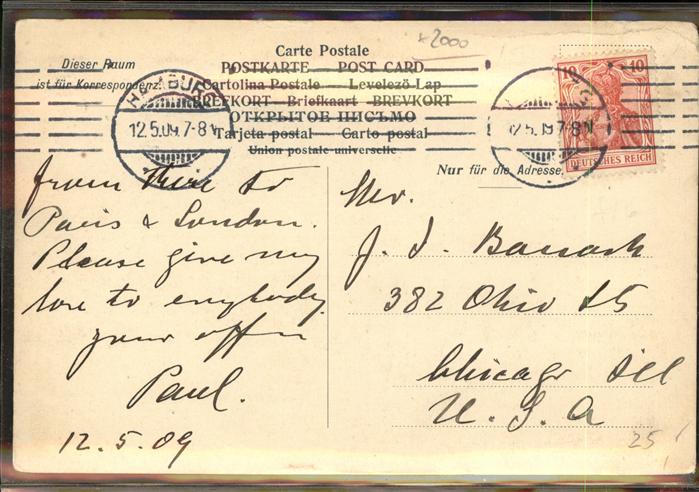 x2000
Carte Postale
Dieser Raum
ist für Korrespondenz.
POSTKARTE POST CARD
Cartolina Postale - Levelező-Lap
BREFKORT - Briefkaart - BREVKORT
ОТКРЫТОЕ ПИСЬМО
Tarjeta postal - Carto postal
Union postale universelle
Nur für die Adresse.
HAMBURG
12.5.09.7-8V
12.5.09.7-8V
10 10
DEUTSCHES REICH
from there to
Paris & London.
Please give my
love to enybody
your
Paul.
12.5.09
Mr.
J. J.
382 Ohio St
Chicago Ill
U. S. A
25